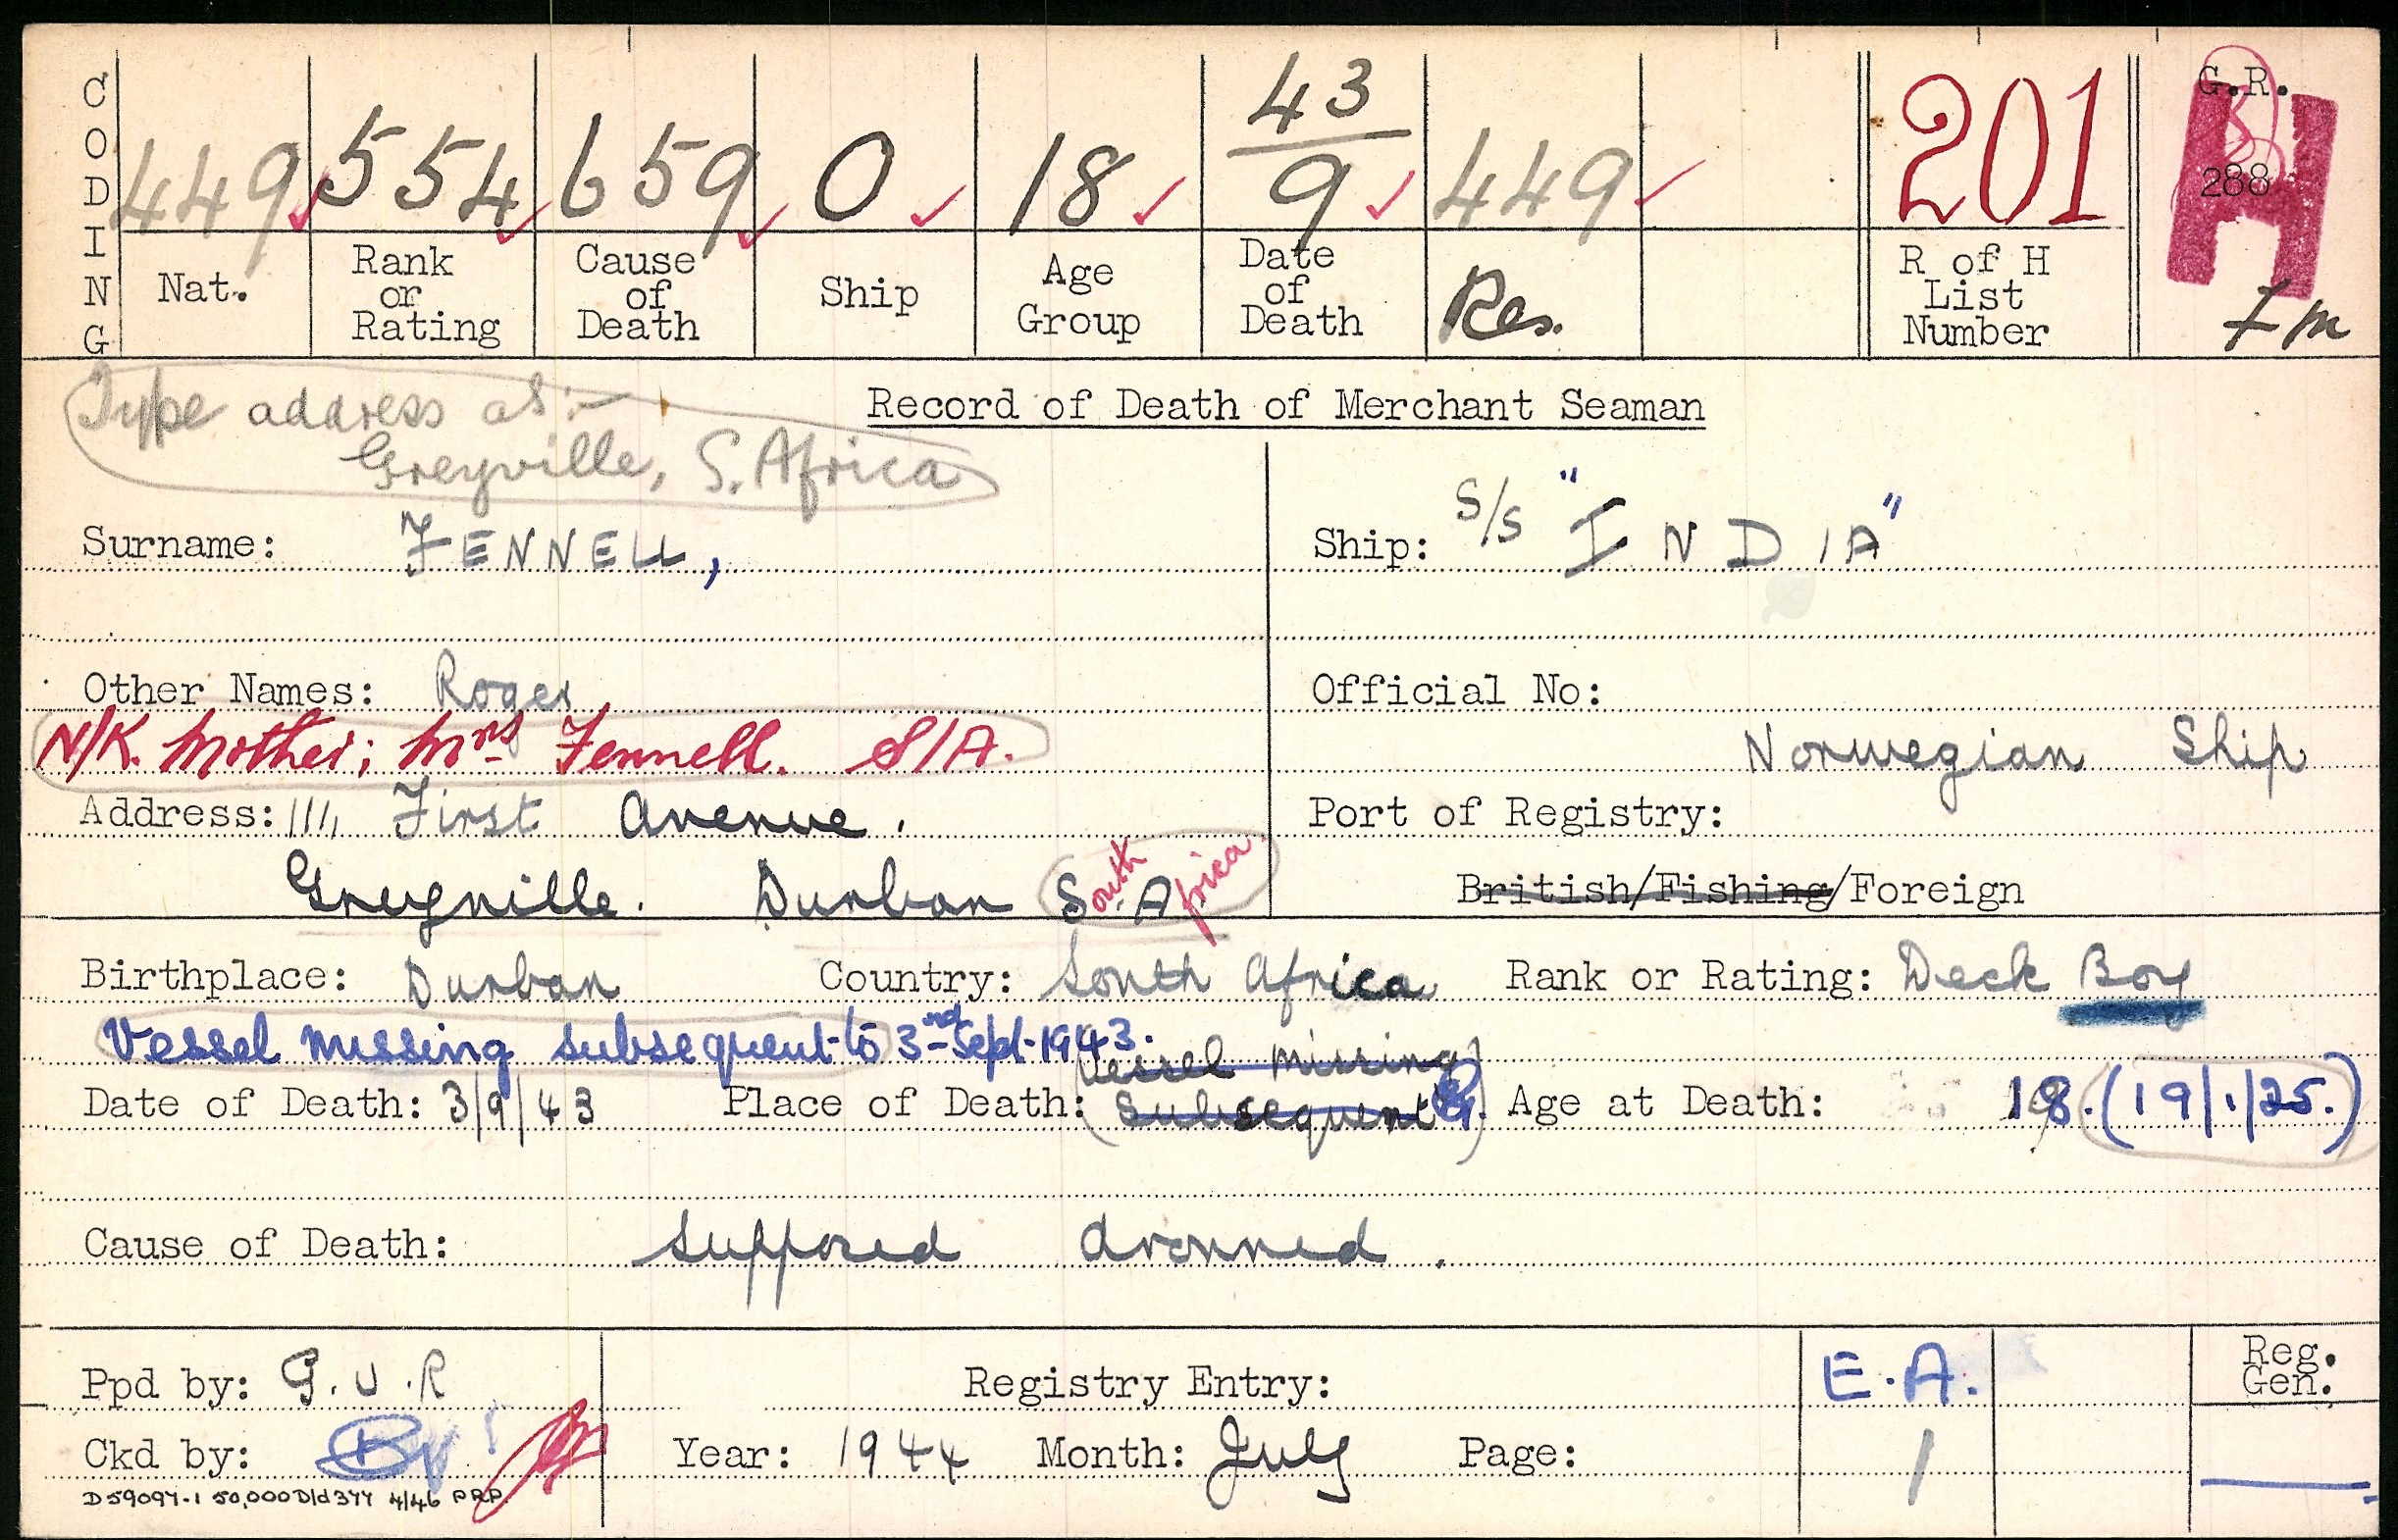 CODING
449 554 659 0 18 43/9 449 201 G.R. 288 H
Nat. Rank or Rating Cause of Death Ship Age Group Date of Death Res. R of H List Number
Type address as:-
Greyville, S. Africa
Record of Death of Merchant Seaman
Surname: FENNELL,
Ship: S/S "INDIA"
Other Names: Roger
Official No:
N/K. Mother; Mrs Fennell. S/A.
Norwegian Ship
Address: 111, First Avenue.
Port of Registry:
Greyville. Durban South Africa
British/Fishing/Foreign
Birthplace: Durban Country: South Africa Rank or Rating: Deck Boy
Vessel missing subsequent to 3rd Sept. 1943.
Vessel missing
Date of Death: 3/9/43 Place of Death: (Subsequent) Age at Death: 18. (19/1/25.)
Cause of Death: Supposed drowned.
Ppd by: G.J.R Registry Entry: E.A. Reg. Gen.
Ckd by: Year: 1944 Month: July Page: 1
D59097-1 50,000 D/d 377 4/46 PRP